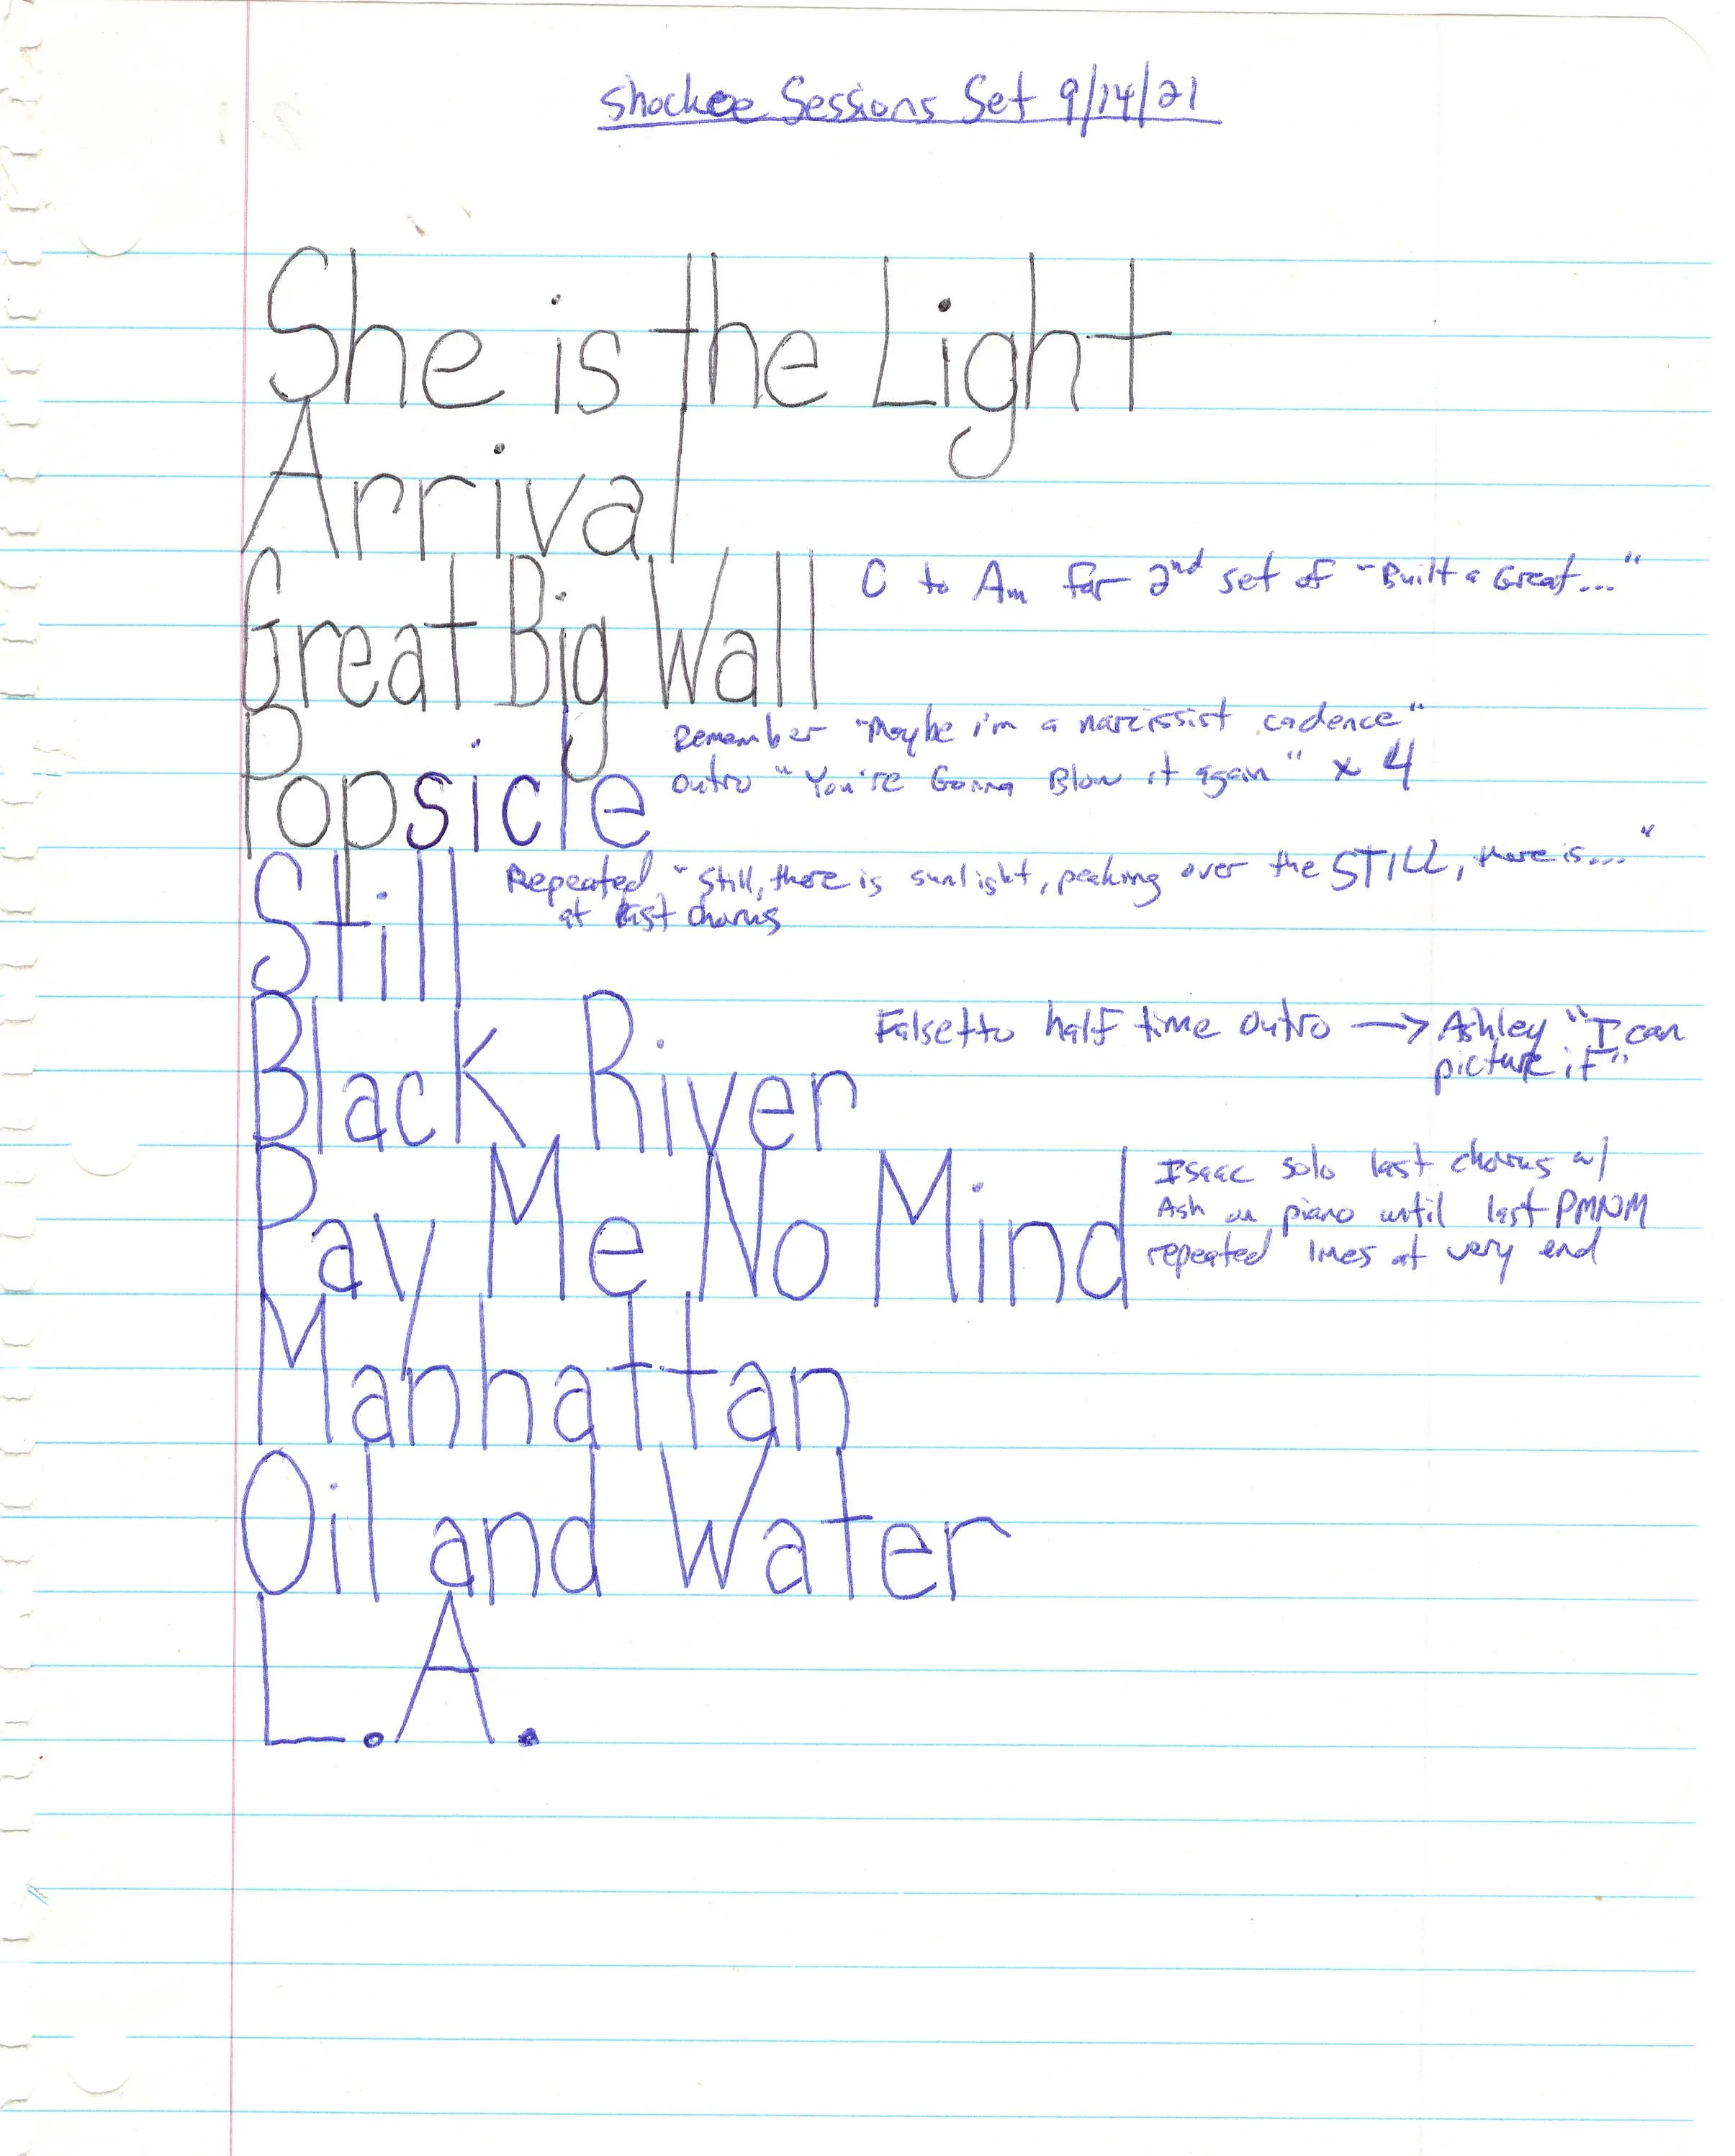 Shockoe Sessions Set 9/14/21
She is the Light
Arrival
Great Big Wall
C to Am for 2nd set of "Built a Great..."
Popsicle
Remember "Maybe i'm a narcissist cadence"
outro "You're Going Blow it again" x 4
Still
Repeated "Still, there is sunlight, peaking over the STILL, there is..."
at last chorus
Black River
Falsetto half time outro → Ashley "I can
picture it"
Pay Me No Mind
Isaac solo last chorus w/
Ash on piano until last PMNM
repeated lines at very end
Manhattan
Oil and Water
L.A.